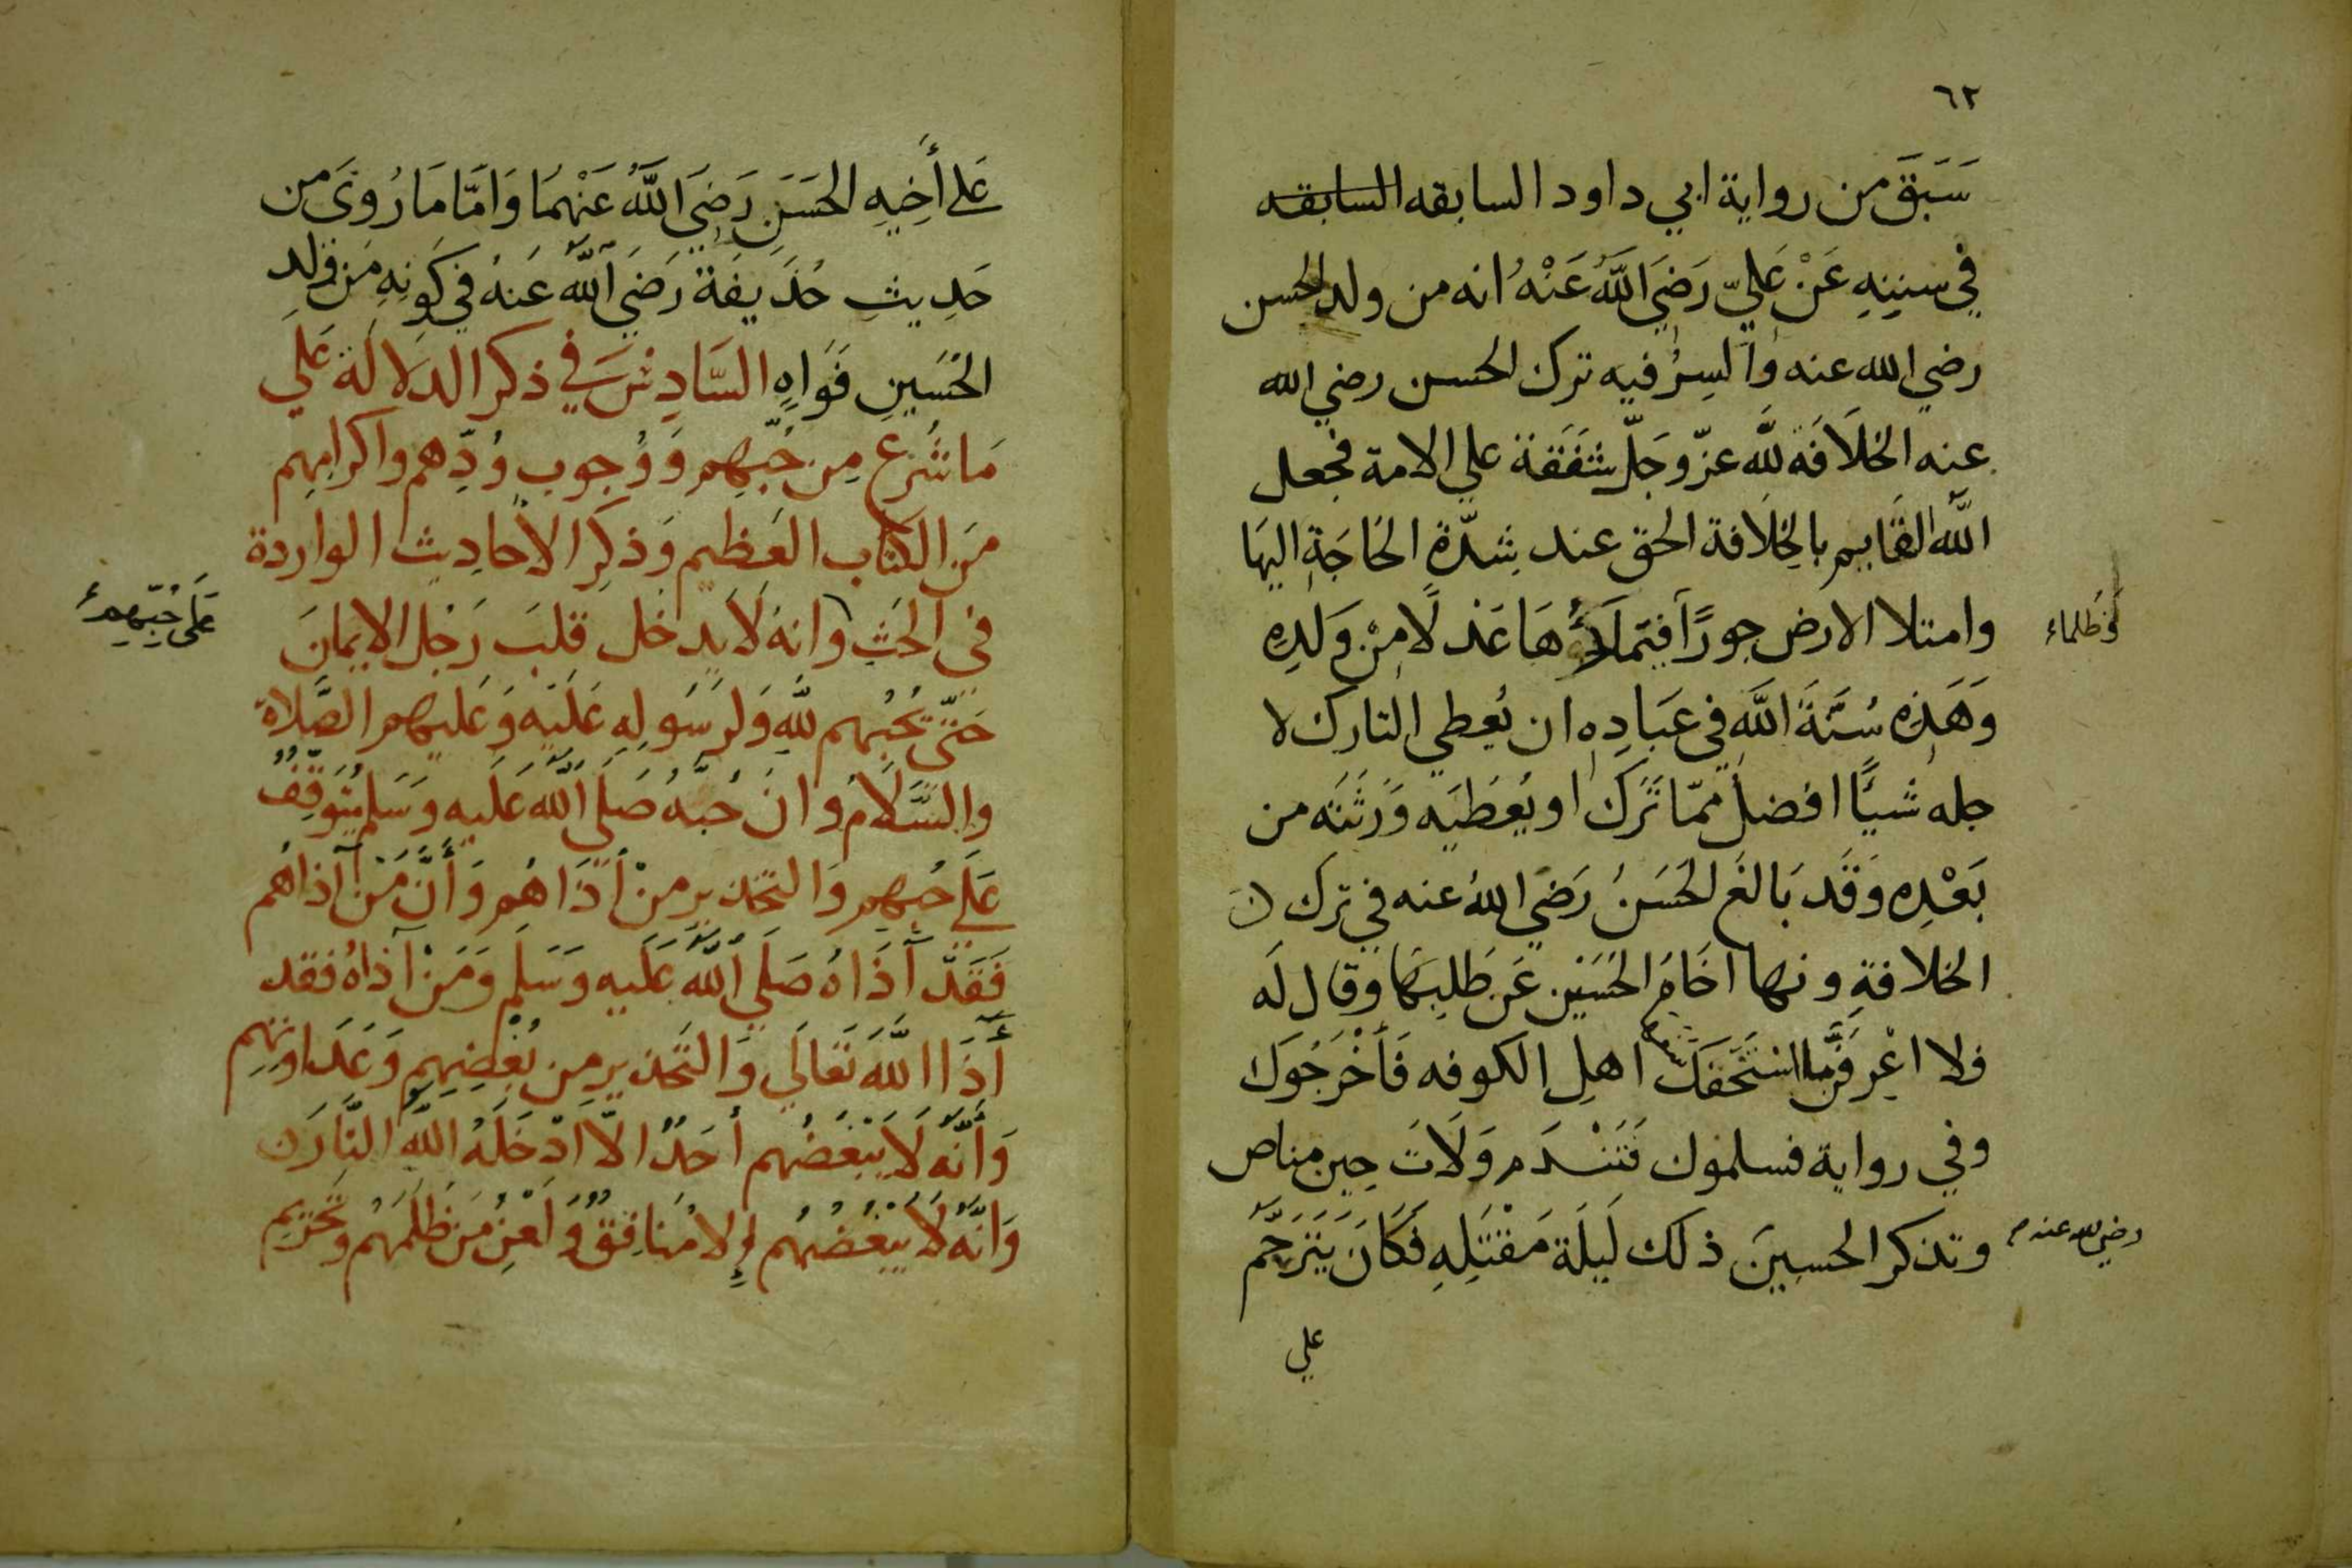 ٦٢
سَبَقَ من رواية ابي داود السابقه السابقه
في سننِهِ عَنْ عَليّ رَضيَ اللَّهُ عَنْهُ انه من ولد الحسن
رضي الله عنه والسِرُّ فيه ترك الحسن رضي الله
عنه الخلَافَة للَّه عزّ وجَلّ شَفَقة علي الامة فجعل
اللَّه القايم بالخِلَافة الحق عند شِدّةِ الحَاجَةِ اليهَا
وامتلا الارض جورًا فيَملَأُهَا عَدلًا مِنْ وَلَدِهِ
وظلماء
وَهَذِه سُنَّةَ اللَّه في عبَادِهِ ان يُعطي التارك لا
جله شيًا افضل ممّا تَرَك او يُعطيَه وَرَثَتَه من
بَعْدِه وَقَد بَالغَ الحَسَنُ رَضي اللهُ عنه في ترك
الخلافةِ ونها اخَاهُ الحُسَيْن عَن طَلِبهَا وقال لَه
فلا اعْرِفَنَّ ما استَخَفَكَ اهلِ الكوفه فَأَخْرَجُوَك
وفي رواية فسلموك فَتَنْدَم وَلَاتَ حِين مناص
وتذكر الحسينَ ذلك لَيلَة مَقْتَلِهِ فَكَانَ يَتَرَحَّمُ
رضي الله عنه
علي
عَلى أَخِيهِ الحَسَنِ رَضِيَ اللَّهُ عَنْهُمَا وَامَّا مَا رُويَ من
حَدِيثِ حُذَيفَة رَضيَ اللَّهُ عَنهُ في كَونِهِ مَن وَلَدِ
الحُسَينِ فَوَاهٍ السَّادِسَ في ذكر الدلَالَة عَلي
مَا شُرِع مِن حُبّهِم وَوُجوب وُدِّهم واكرامِهم
مِنَ الكتَاب العَظيم وَذكرِ الاحادِيث الواردة
فى الحَثِ وانهُ لَا يدخل قلبَ رَجُل الايمانَ
عَلَى حُبّهِم
حَتّى يُحبُهم للهِ وَلرَسُولِهِ عَلَيْه وَعَليهم الصَّلَاة
والسَّلَامُ وانَ حُبَّهُ صَلَى اللَّهُ عَلَيه وَسَلم يُتَوقِّفُ
عَلى حُبهم وَالتحذير منْ أَذَاهُم وَأَنَّ مَنْ آذاهُم
فَقَدْ آذَاهُ صَلي اللَّهُ عَلَيه وَسَلم وَمَنْ آذاهُ فقد
أَذَا اللَّهَ تَعَالَي وَالتَحذير مِن بُغْضِهِم وَعَدَاوتِهِم
وَأَنَّه لَا يَبْغَضُهم أحَدٌ الّا ادْخَلَهُ اللَّه النَّارَ
وَانَّه لَا يَبْغُضُهُم إلا مُنَافِقٌ وَلَعْنِ مَن ظَلَمَهُم وتحريم